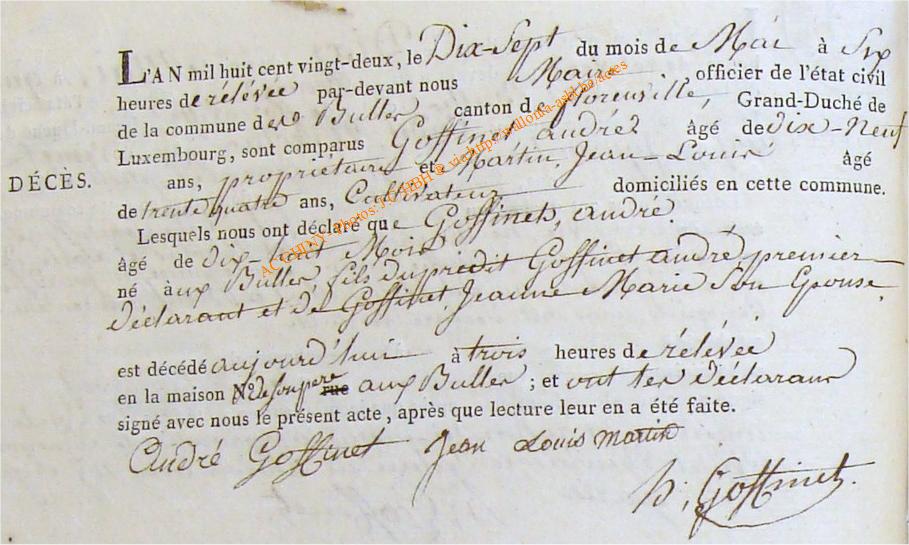 L'AN mil huit cent vingt-deux, le Dix-Sept du mois de Mai à Six
heures de rélévée par-devant nous Maire officier de l'état civil
de la commune de Buller canton de florenville, Grand-Duché de
Luxembourg, sont comparus Goffinet andré âgé de dix-Neuf
DÉCÈS.
ans, propriétaire et Martin, Jean-Louis âgé
de trente quatre ans, Cultivateur domiciliés en cette commune.
Lesquels nous ont déclaré que Goffinet, andré.
âgé de dix-huit Mois
né aux Buller, fils du prédit Goffinet andré premier
déclarant et de Goffinet Jeanne Marie Son Epouse,
est décédé aujourd'hui à trois heures de rélévée
en la maison No. de son pere rue aux Buller ; et ont les déclarans
signé avec nous le présent acte, après que lecture leur en a été faite.
André Goffinet Jean Louis Martin
h; Goffinet.